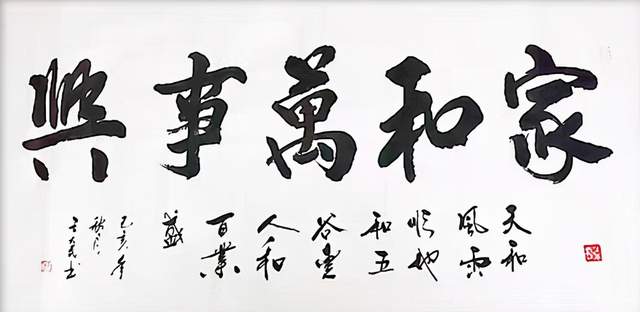 家和萬事興
天和
風雨
順地
和五
谷豐
人和
百業
盛
己亥年
秋月
书